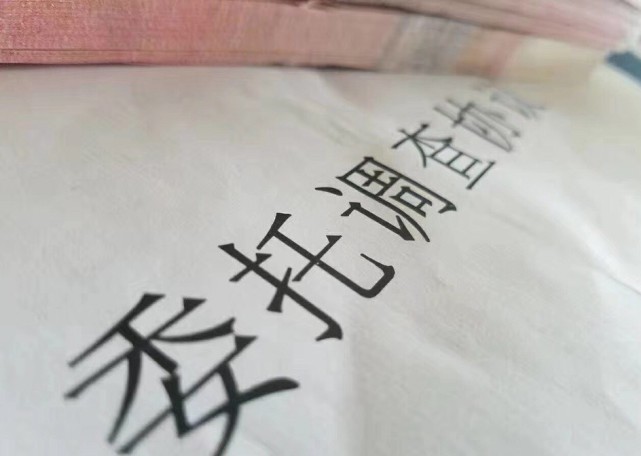 委托调查协议